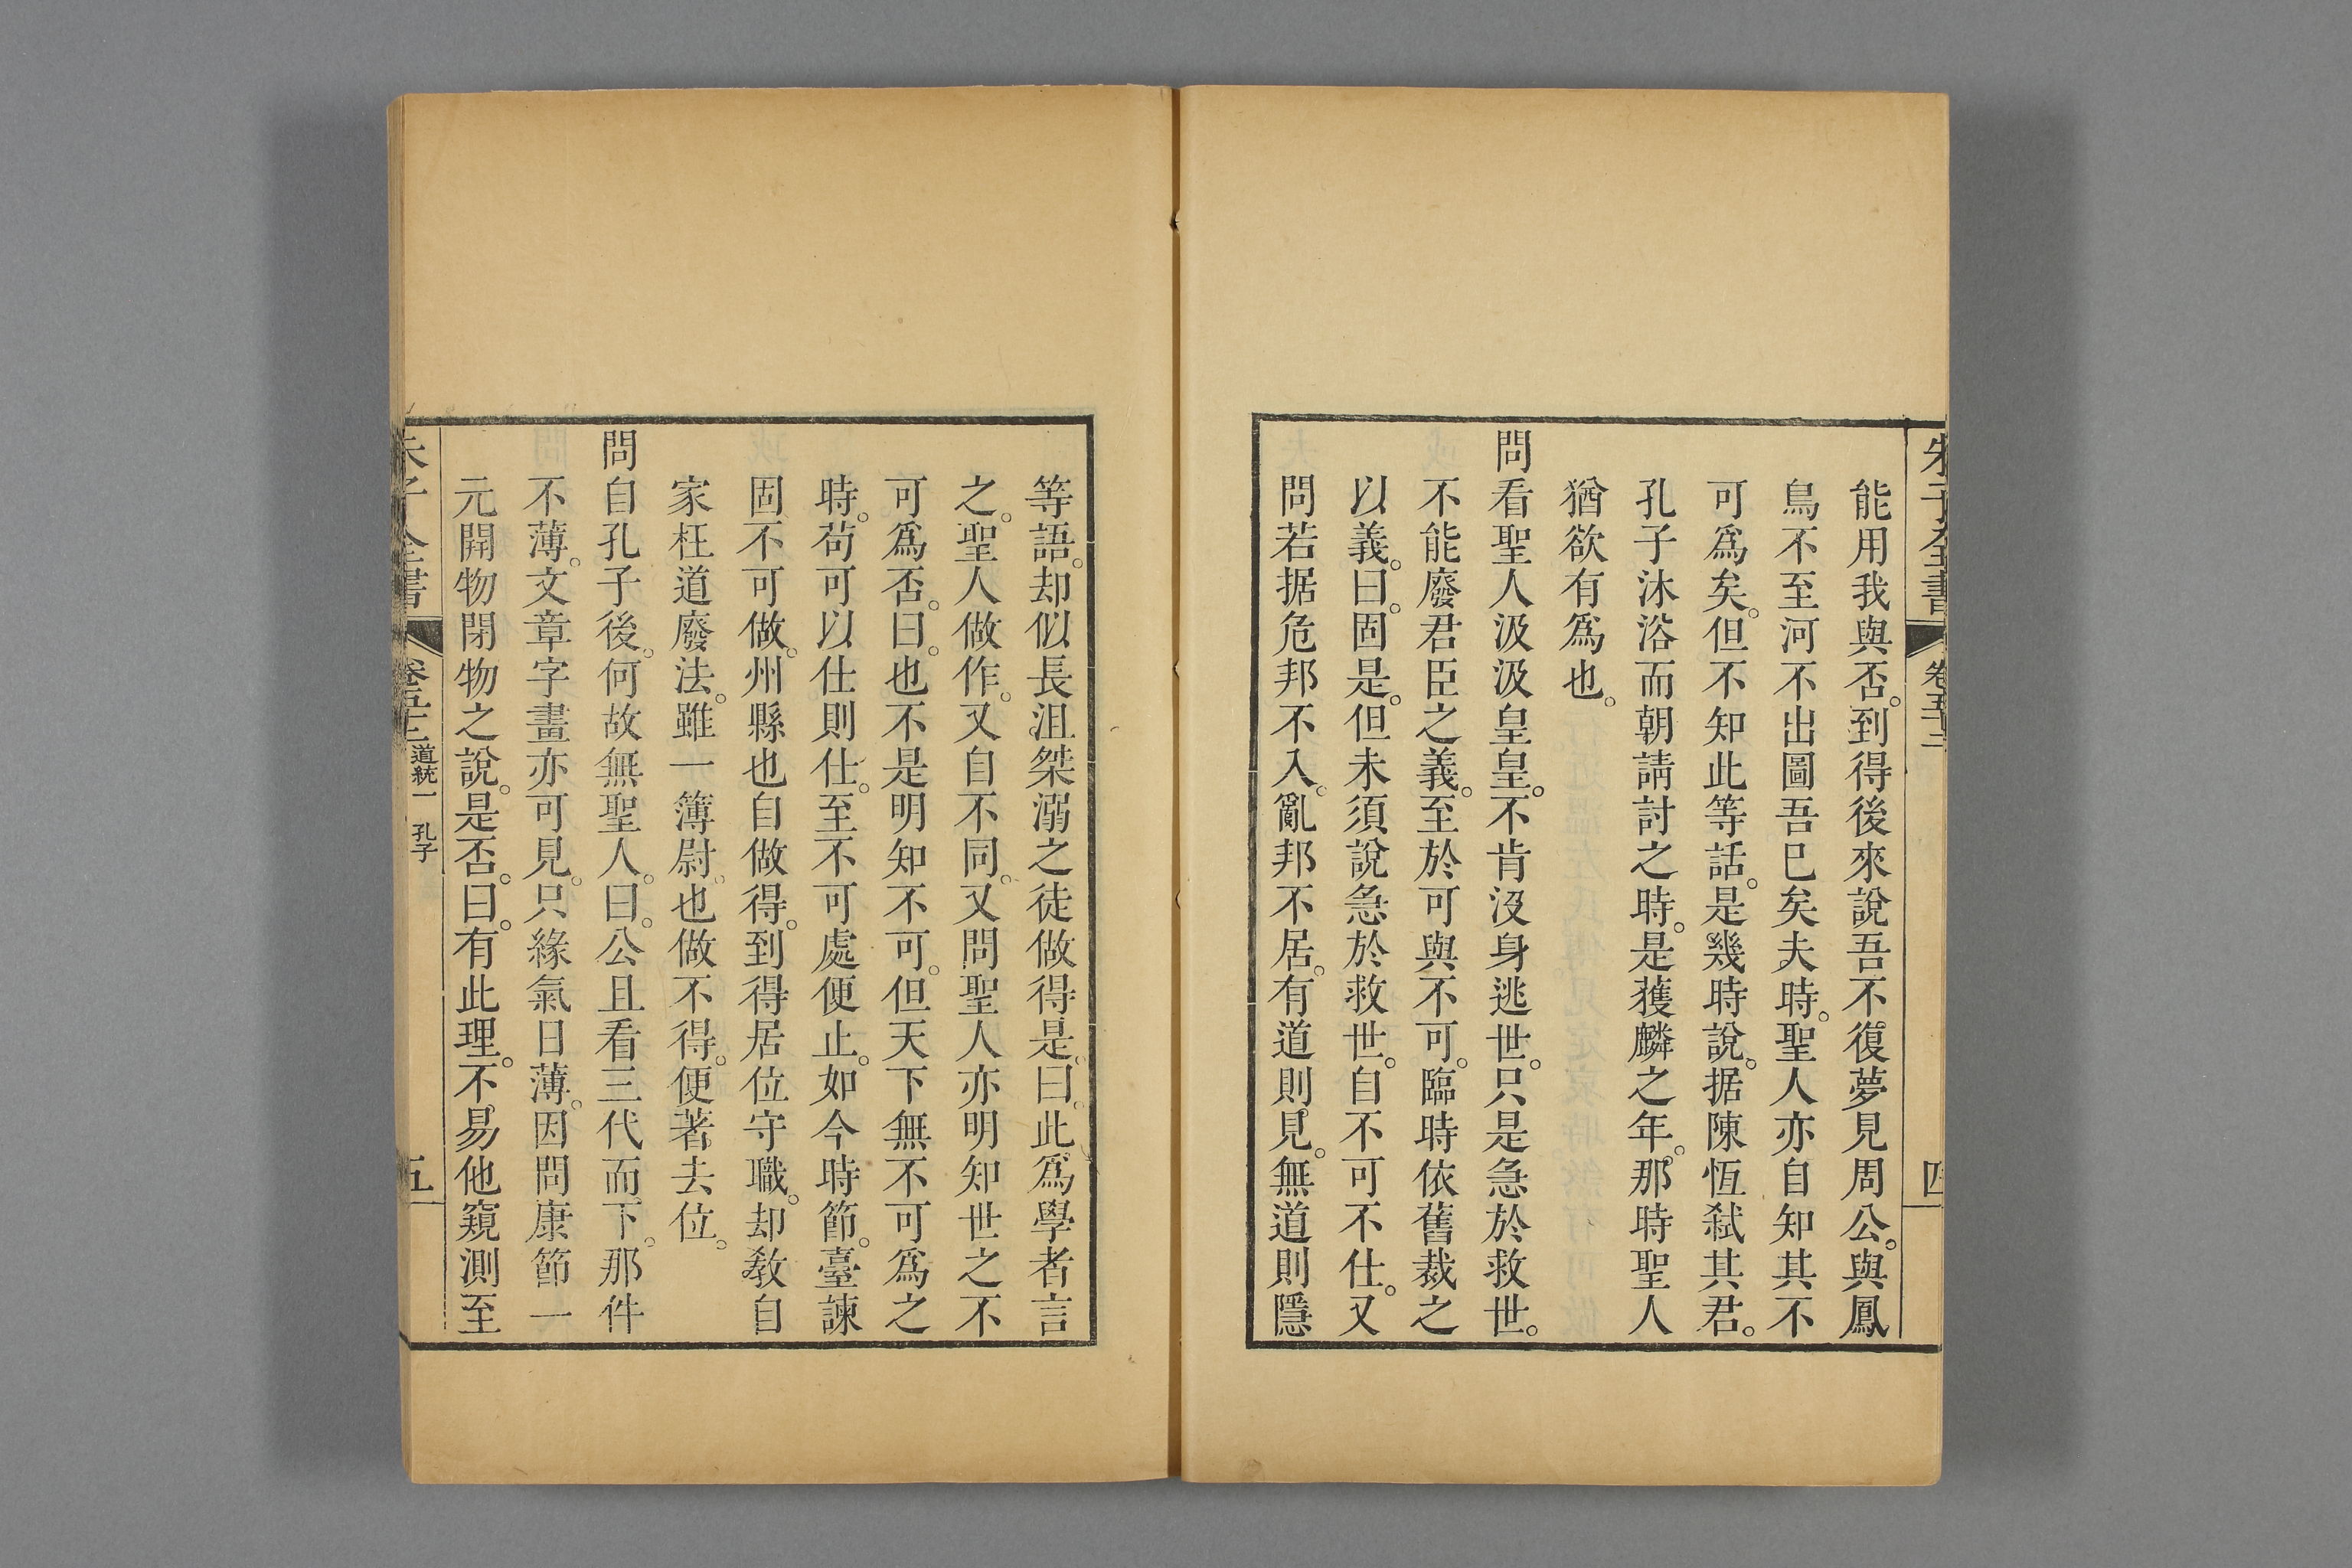 朱子全書 卷五十二 四
能用我與否。到得後來說吾不復夢見周公。與鳳
鳥不至河不出圖吾已矣夫時。聖人亦自知其不
可爲矣。但不知此等話。是幾時說。据陳恆弒其君。
孔子沐浴而朝請討之時。是獲麟之年。那時聖人
猶欲有爲也。
問看聖人汲汲皇皇。不肯沒身逃世。只是急於救世。
不能廢君臣之義。至於可與不可。臨時依舊裁之
以義。曰。固是。但未須說急於救世。自不可不仕。又
問若据危邦不入。亂邦不居。有道則見。無道則隱
等語。却似長沮桀溺之徒做得是。曰。此爲學者言
之。聖人做作。又自不同。又問聖人亦明知世之不
可爲否。曰。也不是明知不可。但天下無不可爲之
時。苟可以仕則仕。至不可處便止。如今時節。臺諫
固不可做。州縣也自做得。到得居位守職。却敎自
家枉道廢法。雖一簿尉。也做不得。便著去位。
問自孔子後。何故無聖人。曰。公且看三代而下。那件
不薄。文章字畫亦可見。只緣氣日薄。因問康節一
元開物閉物之說。是否。曰。有此理。不易他窺測至
朱子全書 卷五十二 道統一 孔子 五